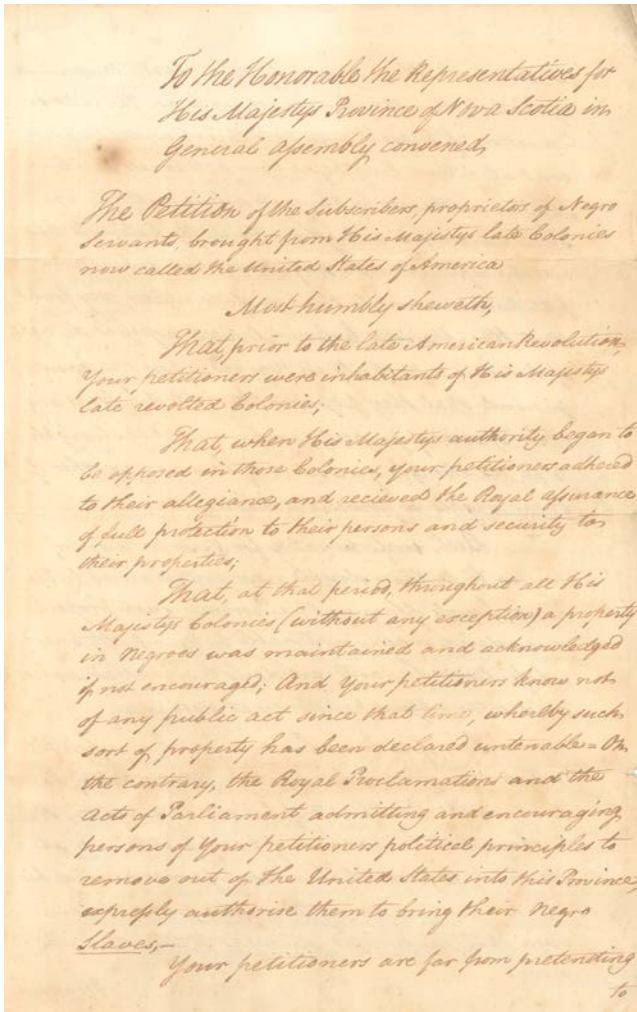 To the Honorable the Representatives for
His Majestys Province of Nova Scotia in
General Assembly convened,
The Petition of the Subscribers, proprietors of Negro
Servants, brought from His Majestys late Colonies
now called the United States of America
Most humbly sheweth,
That, prior to the late American Revolution,
Your petitioners were inhabitants of His Majestys
late revolted Colonies;
That, when His Majestys authority began to
be opposed in those Colonies, your petitioners adhered
to their allegiance, and recieved the Royal assurance
of full protection to their persons and security to
their properties;
That, at that period, throughout all His
Majestys Colonies (without any exception) a property
in Negroes was maintained and acknowledged
if not encouraged; And Your petitioners know not
of any public act since that time, whereby such
sort of property has been declared untenable = On
the contrary, the Royal Proclamations and the
Acts of Parliament admitting and encouraging
persons of Your petitioners political principles to
remove out of the United States into this Province,
expressly authorise them to bring their Negro
Slaves,—
Your petitioners are far from pretending
to